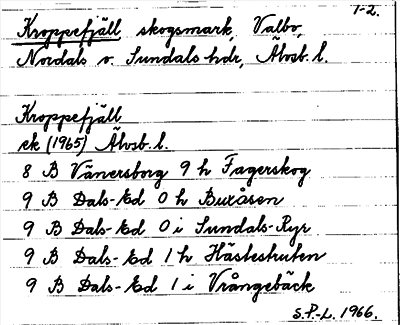 1-2.
Kroppefjäll skogsmark, Valbo,
Nordals o. Sundals hdr, Älvsb. l.
Kroppefjäll
ek (1965) Älvsb. l.
8 B Vänersborg 9 h Fagerskog
9 B Dals-Ed 0 h Buxåsen
9 B Dals-Ed 0 i Sundals-Ryr
9 B Dals-Ed 1 h Hästestruten
9 B Dals-Ed 1 i Vrångebäck
S.P.-L. 1966.